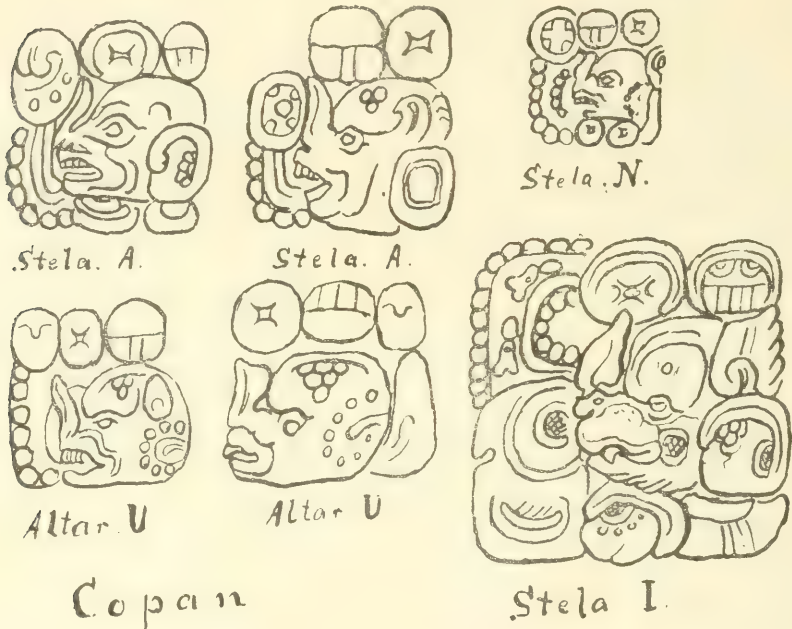 Stela. A.
Stela. A.
Stela. N.
Altar U
Altar U
Copan
Stela I.